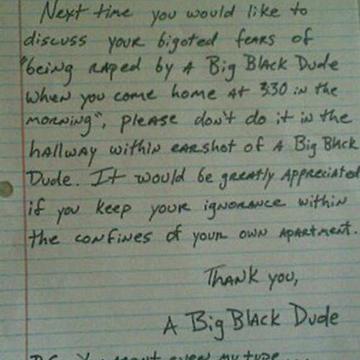 Next time you would like to
discuss your bigoted fears of
"being raped by A Big Black Dude
when you come home at 3:30 in the
morning", please don't do it in the
hallway within earshot of A Big Black
Dude. It would be greatly appreciated
if you keep your ignorance within
the confines of your own apartment.
Thank you,
A Big Black Dude
P.S. You aren't even my type